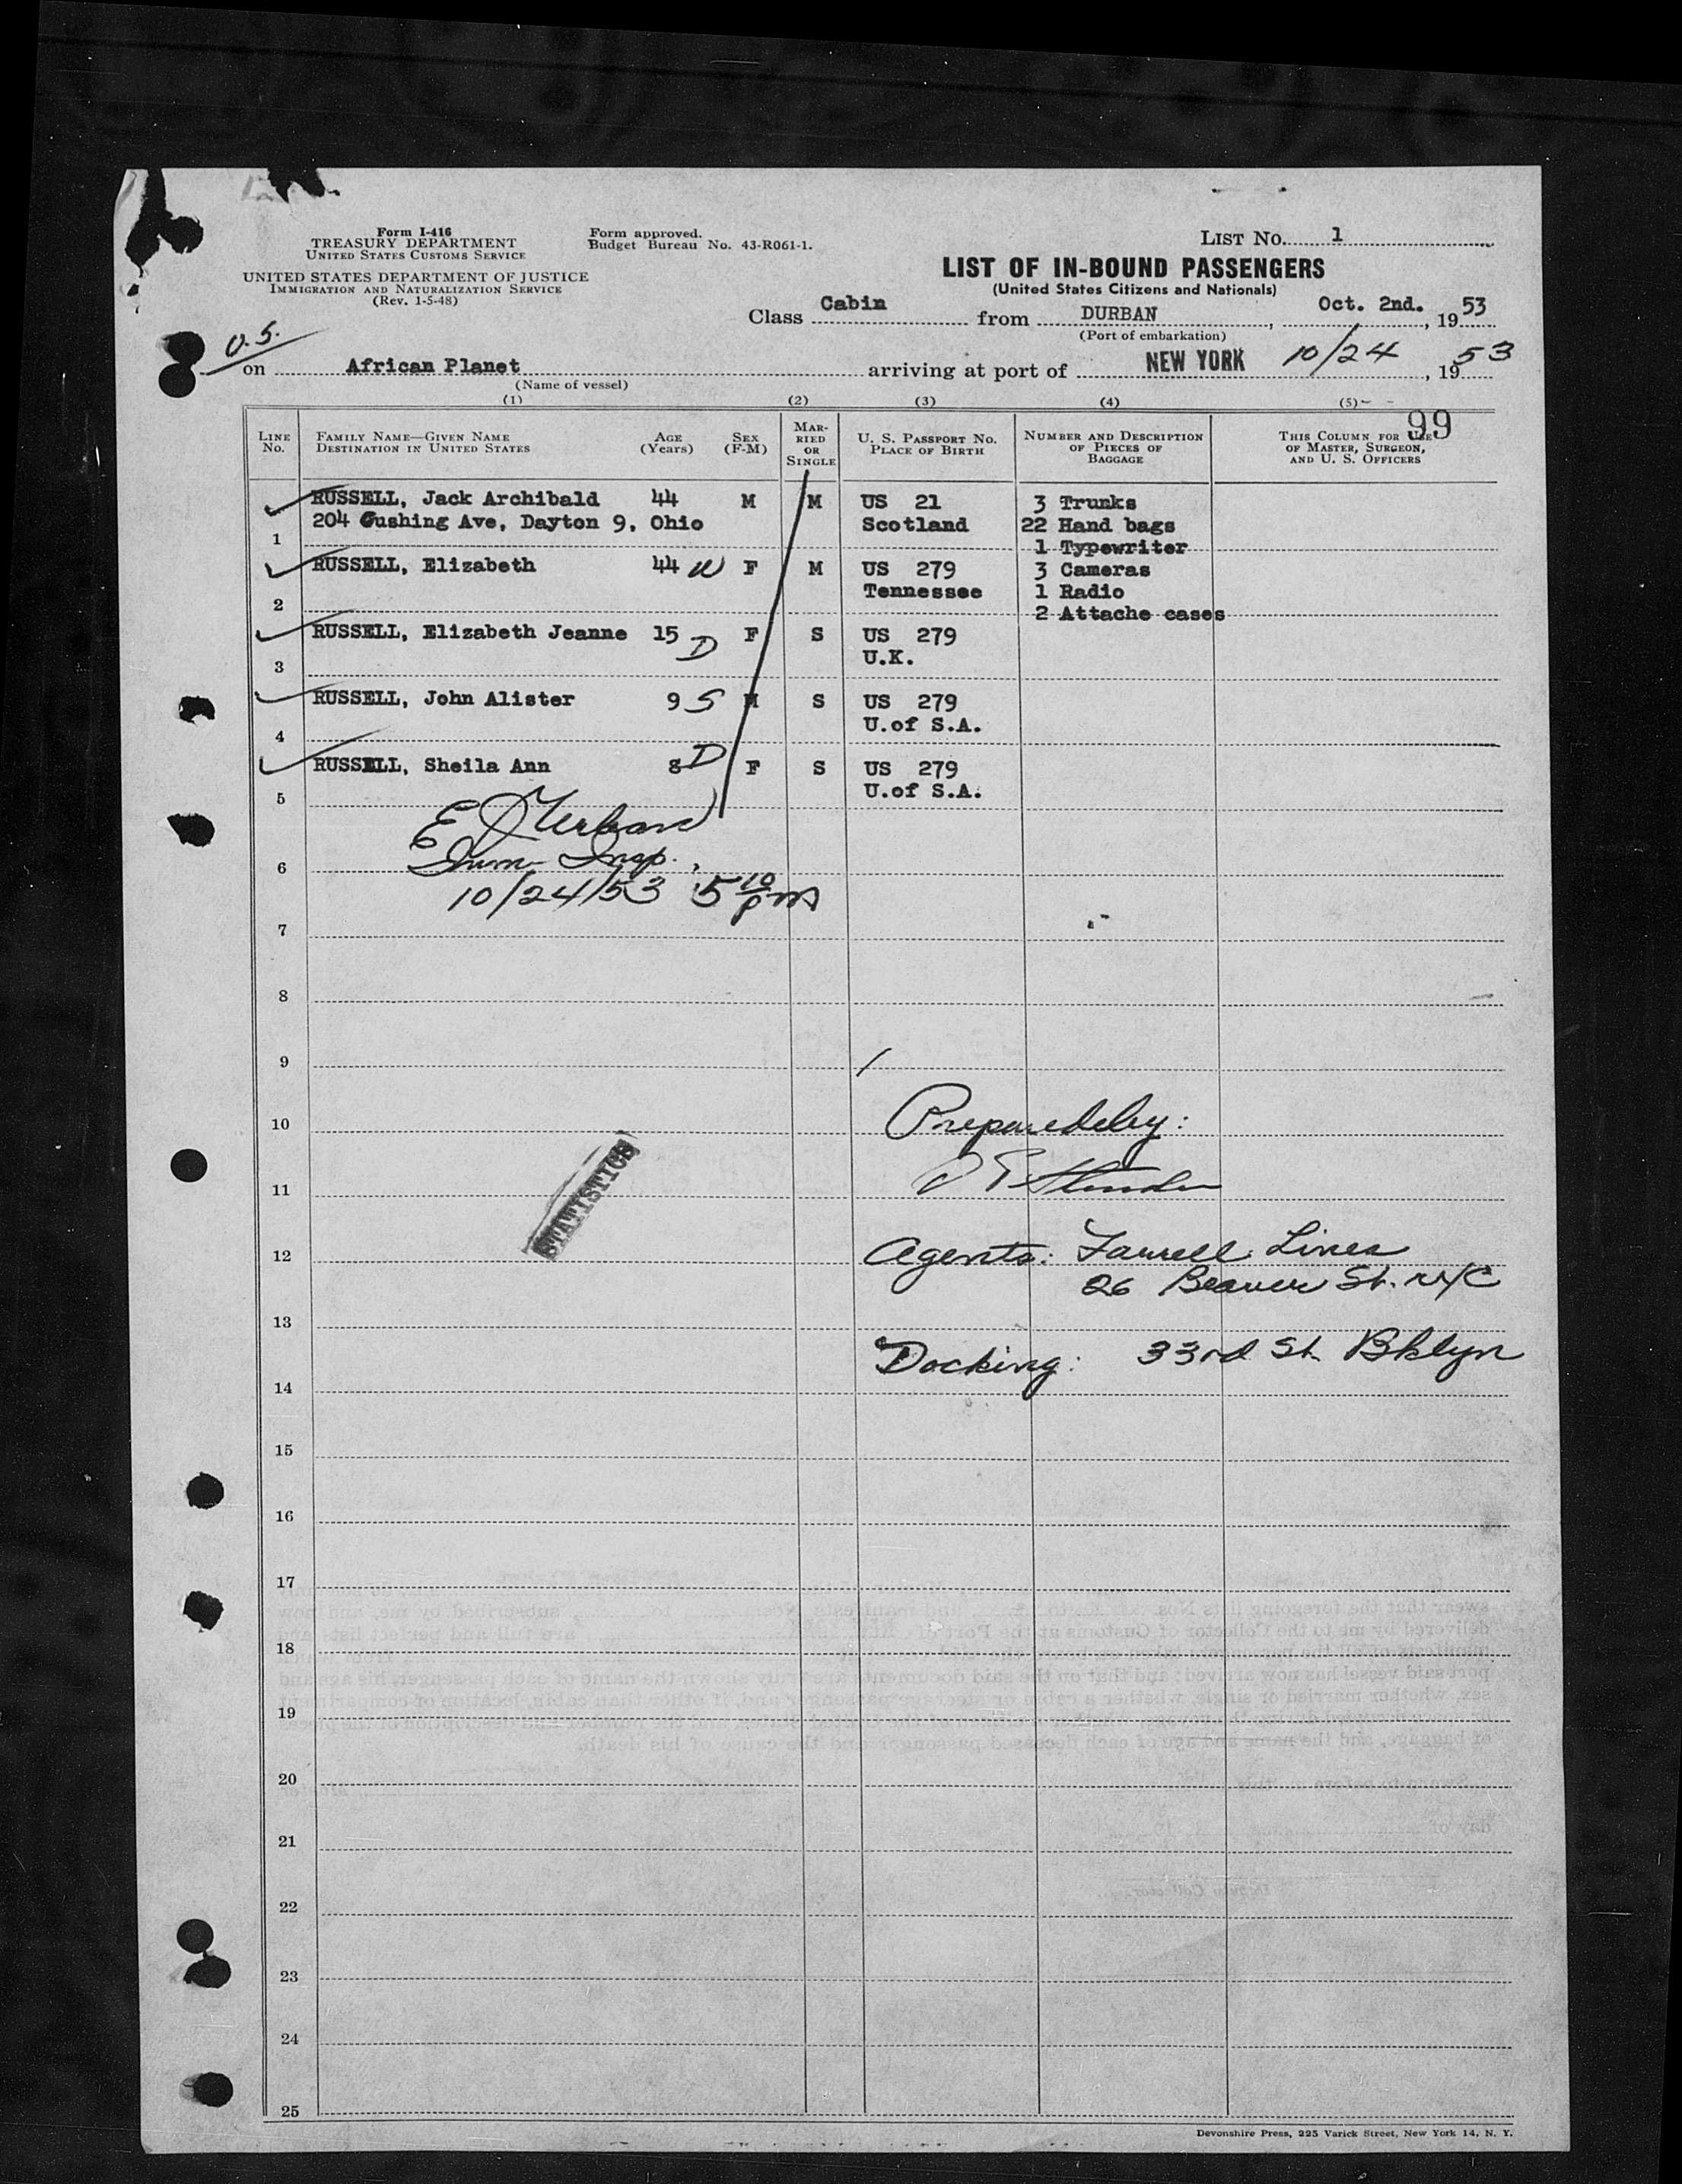 Form I-416
TREASURY DEPARTMENT
UNITED STATES CUSTOMS SERVICE
UNITED STATES DEPARTMENT OF JUSTICE
IMMIGRATION AND NATURALIZATION SERVICE
(Rev. 1-5-48)
Form approved.
Budget Bureau No. 43-R061-1.
LIST NO. 1
LIST OF IN-BOUND PASSENGERS
(United States Citizens and Nationals)
Class Cabin from DURBAN, Oct. 2nd., 1953
(Port of embarkation)
U.S.
on African Planet arriving at port of NEW YORK 10/24, 1953
(Name of vessel)
(1) (2) (3) (4) (5)
99
LINE NO.
FAMILY NAME—GIVEN NAME
DESTINATION IN UNITED STATES
AGE
(YEARS)
SEX
(F-M)
MARRIED OR SINGLE
U. S. PASSPORT NO.
PLACE OF BIRTH
NUMBER AND DESCRIPTION
OF PIECES OF
BAGGAGE
THIS COLUMN FOR USE
OF MASTER, SURGEON,
AND U. S. OFFICERS
RUSSELL, Jack Archibald 44 M M US 21 3 Trunks
204 Cushing Ave, Dayton 9, Ohio Scotland 22 Hand bags
1 1 Typewriter
RUSSELL, Elizabeth 44 W F M US 279 3 Cameras
Tennessee 1 Radio
2 2 Attache cases
RUSSELL, Elizabeth Jeanne 15 D F S US 279
U.K.
3
RUSSELL, John Alister 9 S M S US 279
U.of S.A.
4
RUSSELL, Sheila Ann 8 D F S US 279
U.of S.A.
5
Imm Insp.
6
10/24/53 5 10 pm
7
8
9
10 Prepared by:
11
STATISTICS
12 Agents: Farrell Lines
26 Beaver St. NYC
13
Docking: 33rd St. Bklyn
14
15
16
17
18
19
20
21
22
23
24
25
Devonshire Press, 225 Varick Street, New York 14, N. Y.